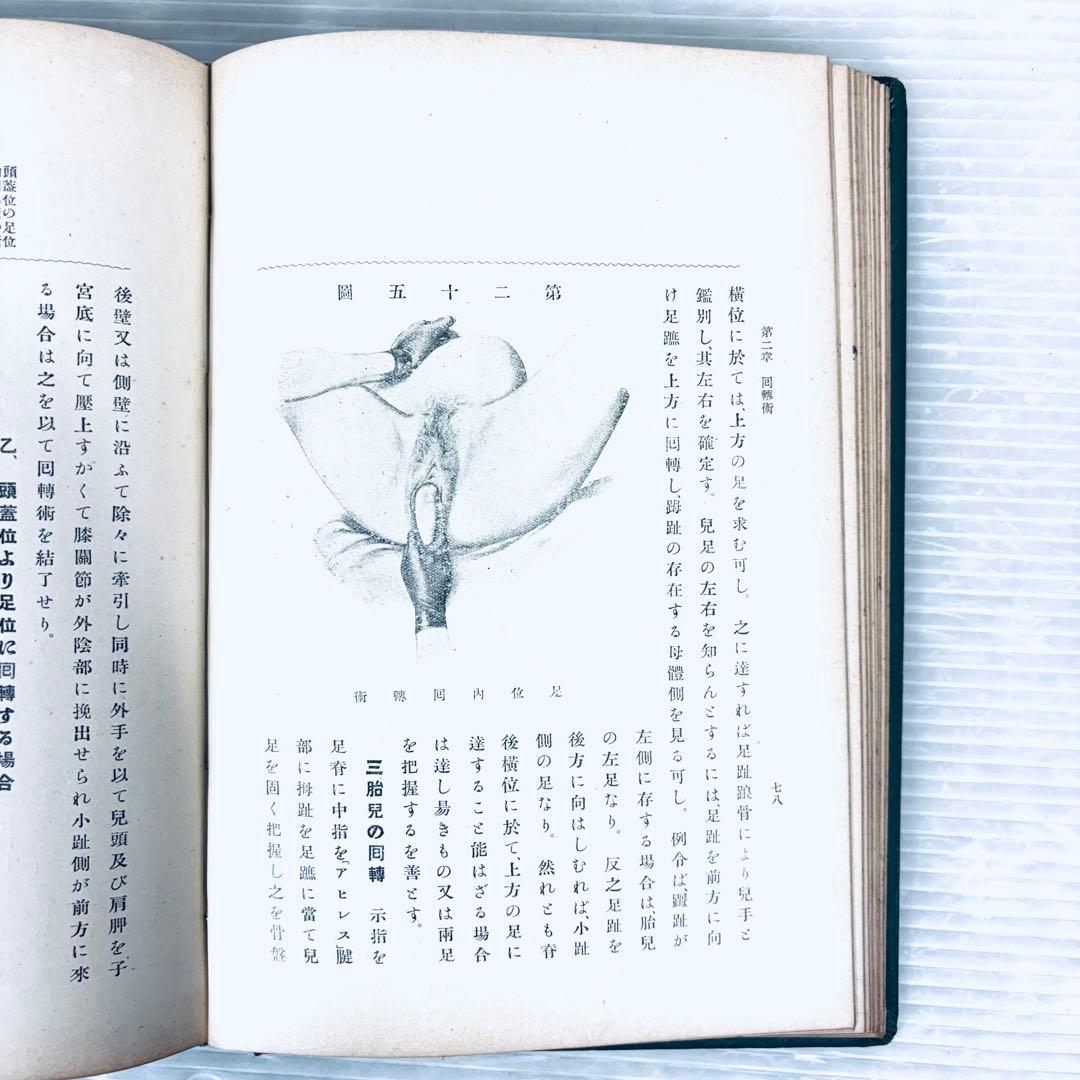 第二章　囘轉術
七八
橫位に於ては、上方の足を求む可し。　之に達すれば足趾踉骨により兒手と
鑑別し、其左右を確定す。　兒足の左右を知らんとするには、足趾を前方に向
け足蹠を上方に囘轉し、踇趾の存在する母體側を見る可し。　例令ば、踇趾が
左側に存する場合は、胎兒
の左足なり。　反之足趾を
後方に向はしむれば、小趾
側の足なり。　然れとも脊
後橫位に於て、上方の足に
達すること能はざる場合
は達し易きもの又は兩足
を把握するを善とす。
三胎兒の囘轉　示指を
足脊に中指を「アヒレス」腱
部に拇趾を足蹠に當て兒
足を固く把握し之を骨盤
第二十五圖
足位內囘轉術
後壁又は側壁に沿ふて除々に牽引し同時に外手を以て兒頭及び肩胛を子
宮底に向て壓上すかくて膝關節が外陰部に挽出せられ小趾側が前方に來
る場合は之を以て囘轉術を結了せり。
乙、頭蓋位より足位に囘轉する場合
頭蓋位の足位